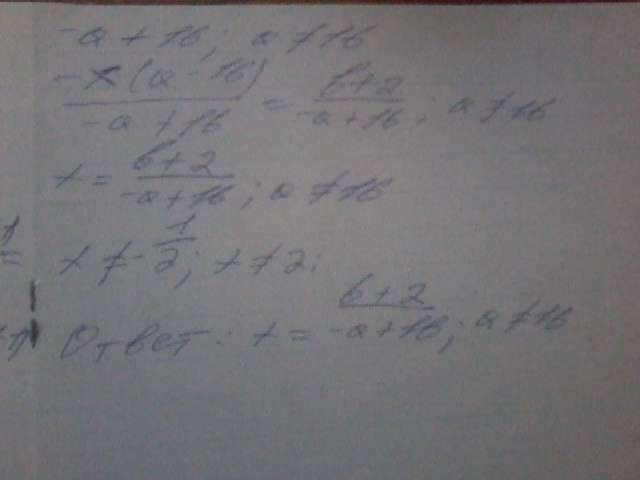 -a + 16; a ≠ 16
-x(a - 16) / -a + 16 = b+2 / -a+16; a ≠ 16
x = b+2 / -a+16; a ≠ 16
x ≠ -1/2; x ≠ 2;
Ответ: x = b+2 / -a+16; a ≠ 16